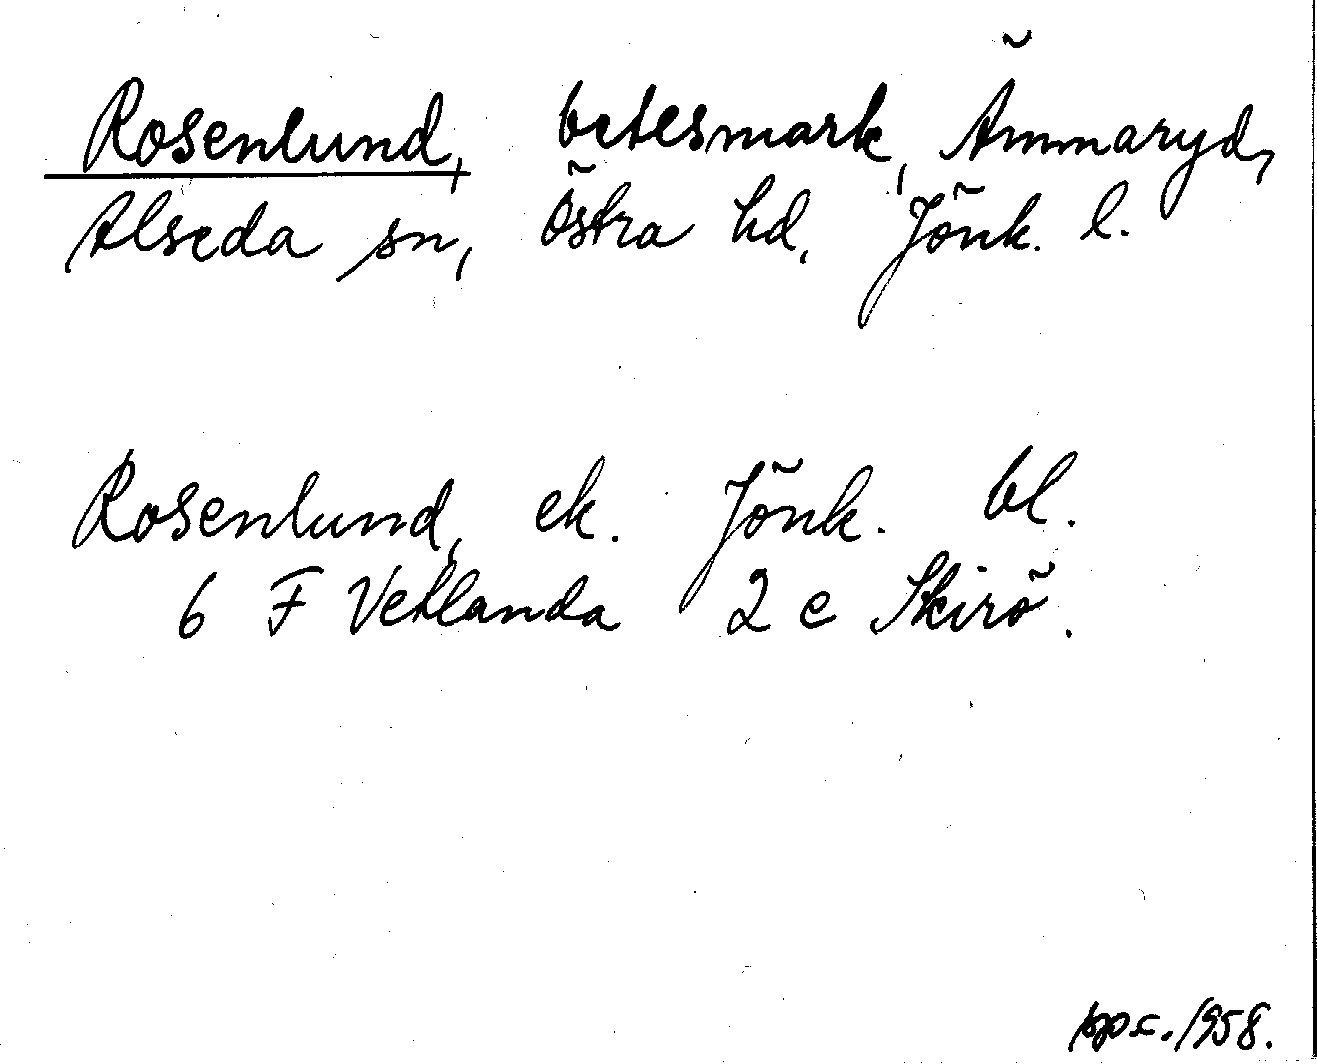 Rosenlund, betesmark, Ämmaryd,
Alseda sn, Östra hd, Jönk. l.
Rosenlund, ek. Jönk. bl.
6 F Vetlanda 2 c Skirö.
1958.